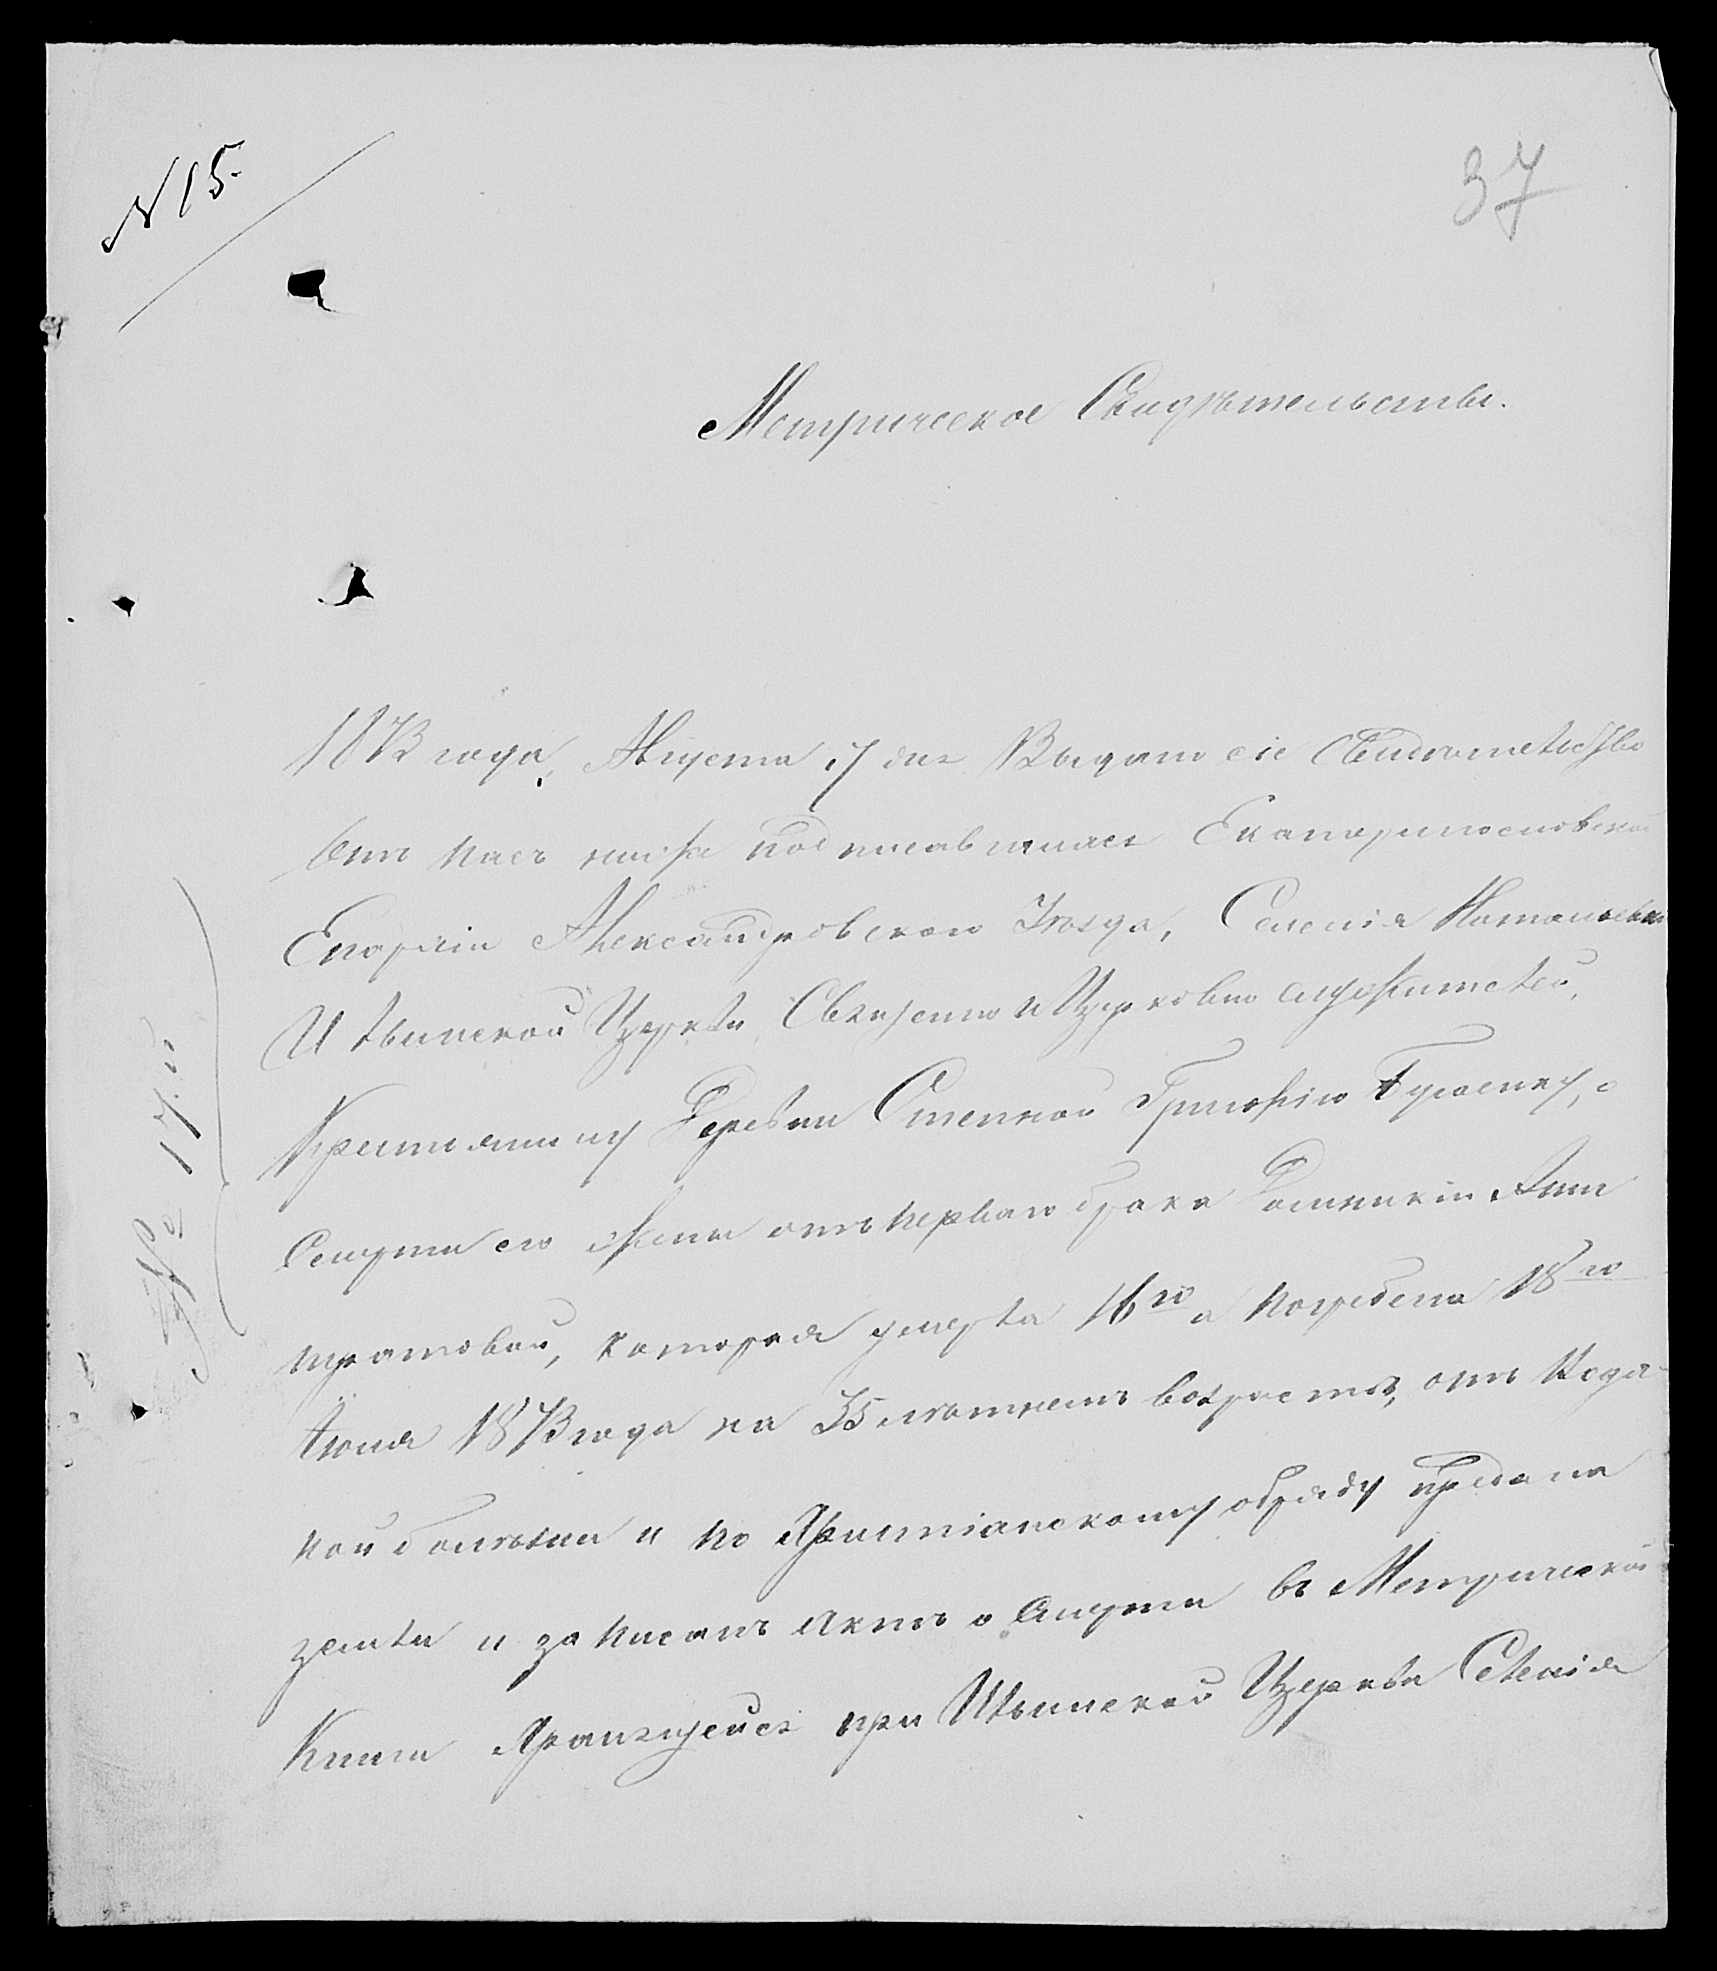 N 15.
37
Метрическое Свидѣтельство.
1873 года, Августа 7 дня Выдано сіе Свидѣтельство
Отъ насъ ниже подписавшихся Екатеринославской
Епархіи Александровскаго Уѣзда, Селенія
Ильинской Церкви Священно и Церковно служителей,
Крестьянину Деревни Степной Григорію о
Смерти его жены отъ перваго брака
тратовой, которая умерла 16го а погребена 18го
Іюня 1873 года на 35 лѣтнемъ возрастѣ, отъ
ной болѣзни и по Христіанскому обряду предана
земли и записанъ актъ о Смерти въ Метрической
Книги Хранящейся при Ильинской Церкви Селенія